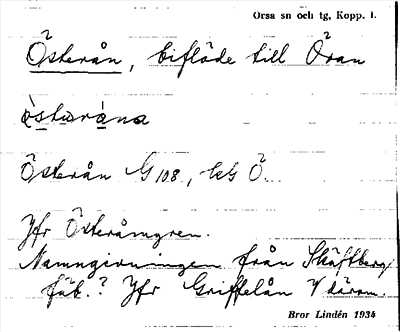 Orsa sn och tg, Kopp. l.
Österån, biflöde till Öran
Österån G 108, bG Ö.
Jfr Österåmyren.
Namngivningen från Skäftberg/
fäb.? Jfr Griffelån V därom.
Bror Lindén 1934